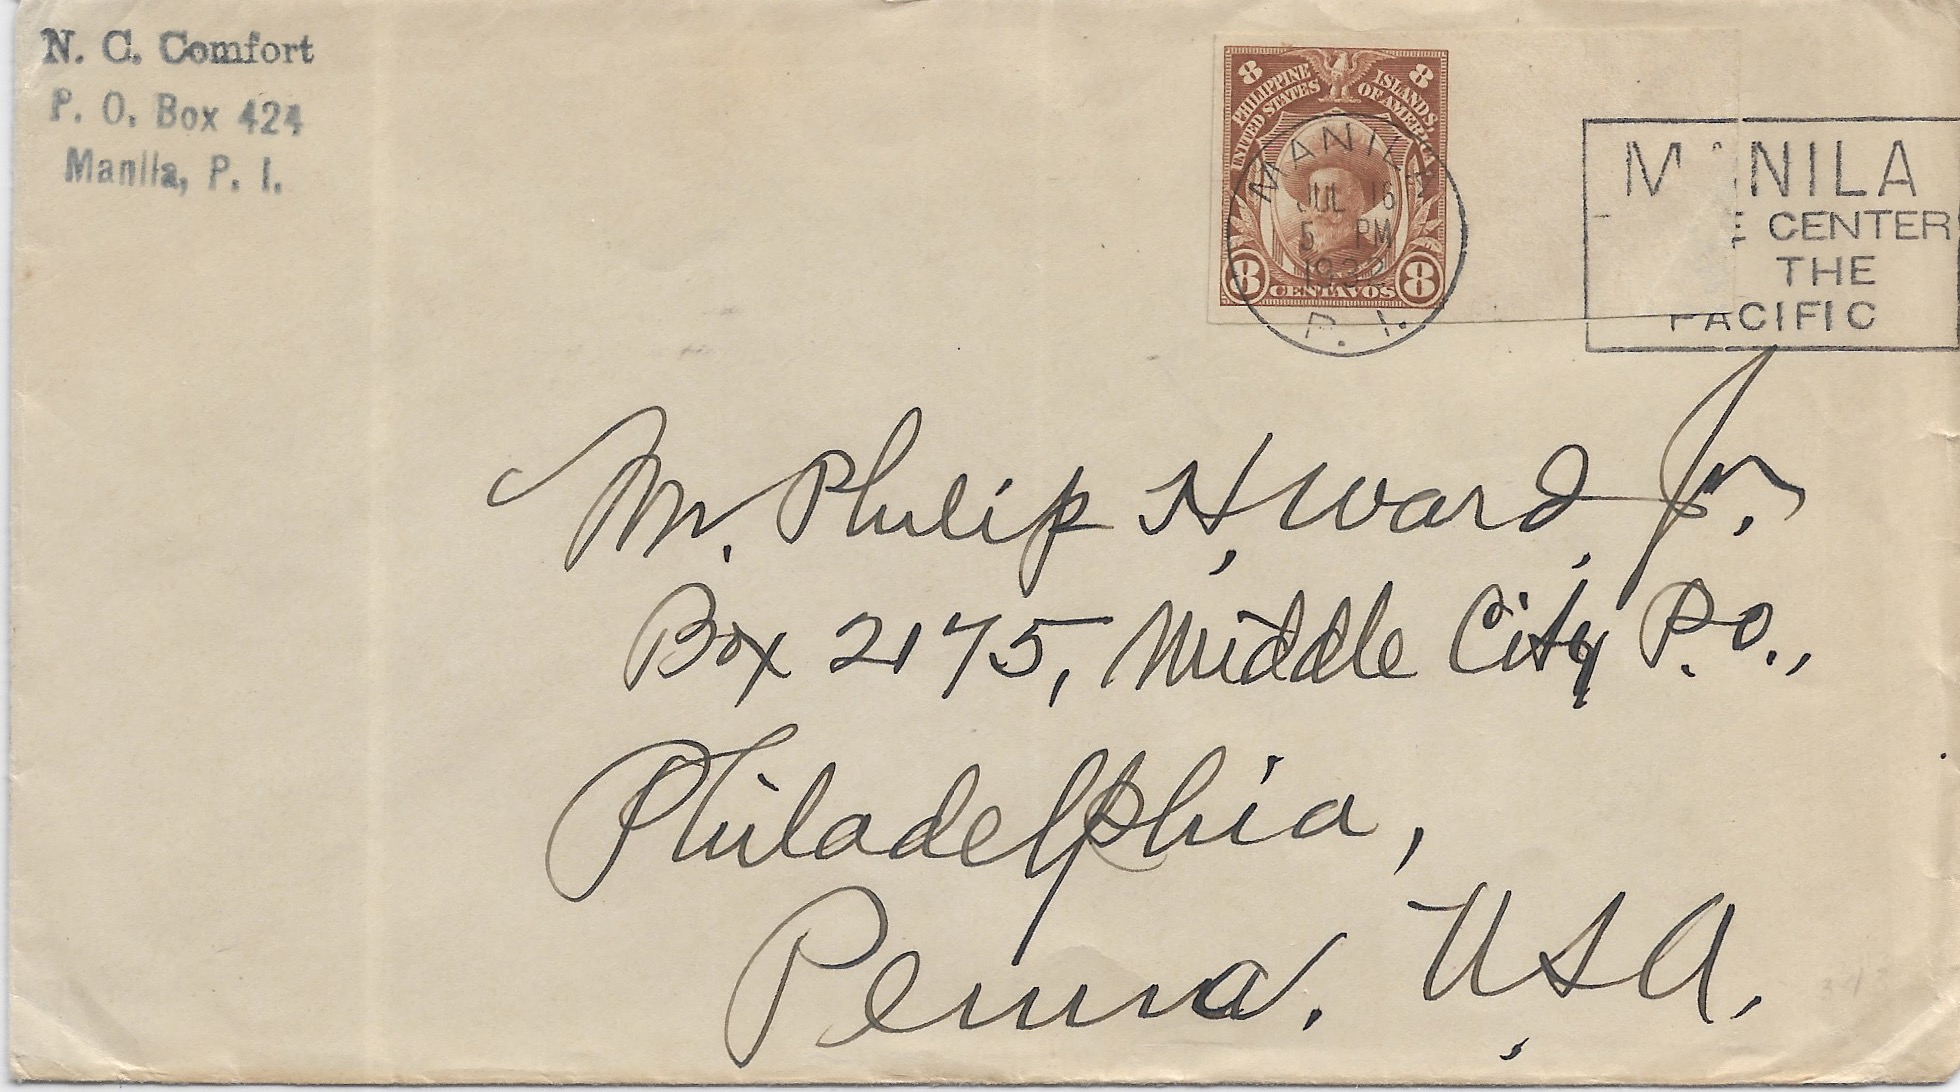 N. C. Comfort
P. O. Box 424
Manila, P. I.
8 PHILIPPINE ISLANDS, 8
UNITED STATES OF AMERICA
8 CENTAVOS 8
MANILA
JUL 16
5 PM
1932
P. I.
MANILA
CENTER
THE
PACIFIC
Mr. Philip H. Ward, Jr.
Box 2175, Middle City P.O.,
Philadelphia,
Penna. USA.